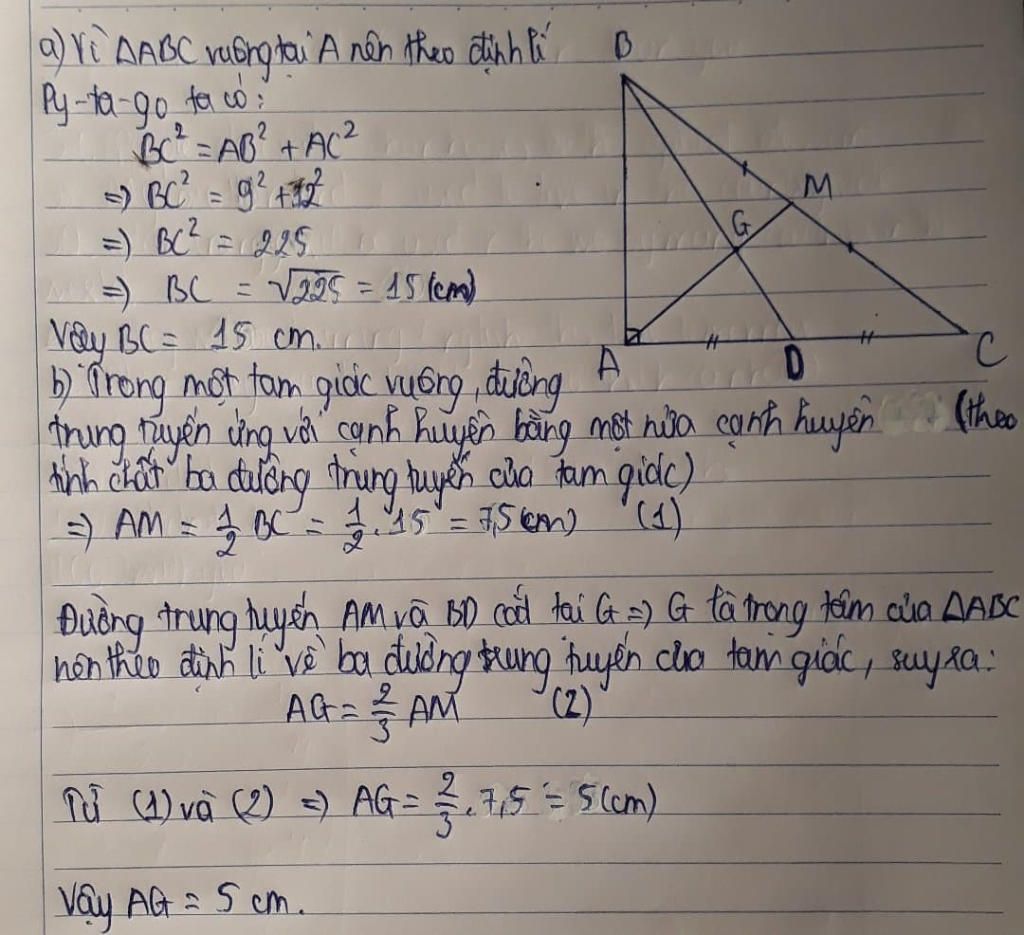 a) Vì ΔABC vuông tại A nên theo định lí
Py-ta-go ta có:
BC² = AB² + AC²
=> BC² = 9² + 12²
=> BC² = 225
=> BC = √225 = 15 (cm)
Vậy BC = 15 cm.
B
M
G
A
D
C
b) Trong một tam giác vuông, đường
trung tuyến ứng với cạnh huyền bằng một nửa cạnh huyền (theo
tính chất ba đường trung tuyến của tam giác)
=> AM = 1/2 BC = 1/2 . 15 = 7,5 (cm) (1)
Đường trung tuyến AM và BD cắt tại G => G là trọng tâm của ΔABC
nên theo định lí về ba đường trung tuyến của tam giác, suy ra:
AG = 2/3 AM (2)
Từ (1) và (2) => AG = 2/3 . 7,5 = 5 (cm)
Vậy AG = 5 cm.